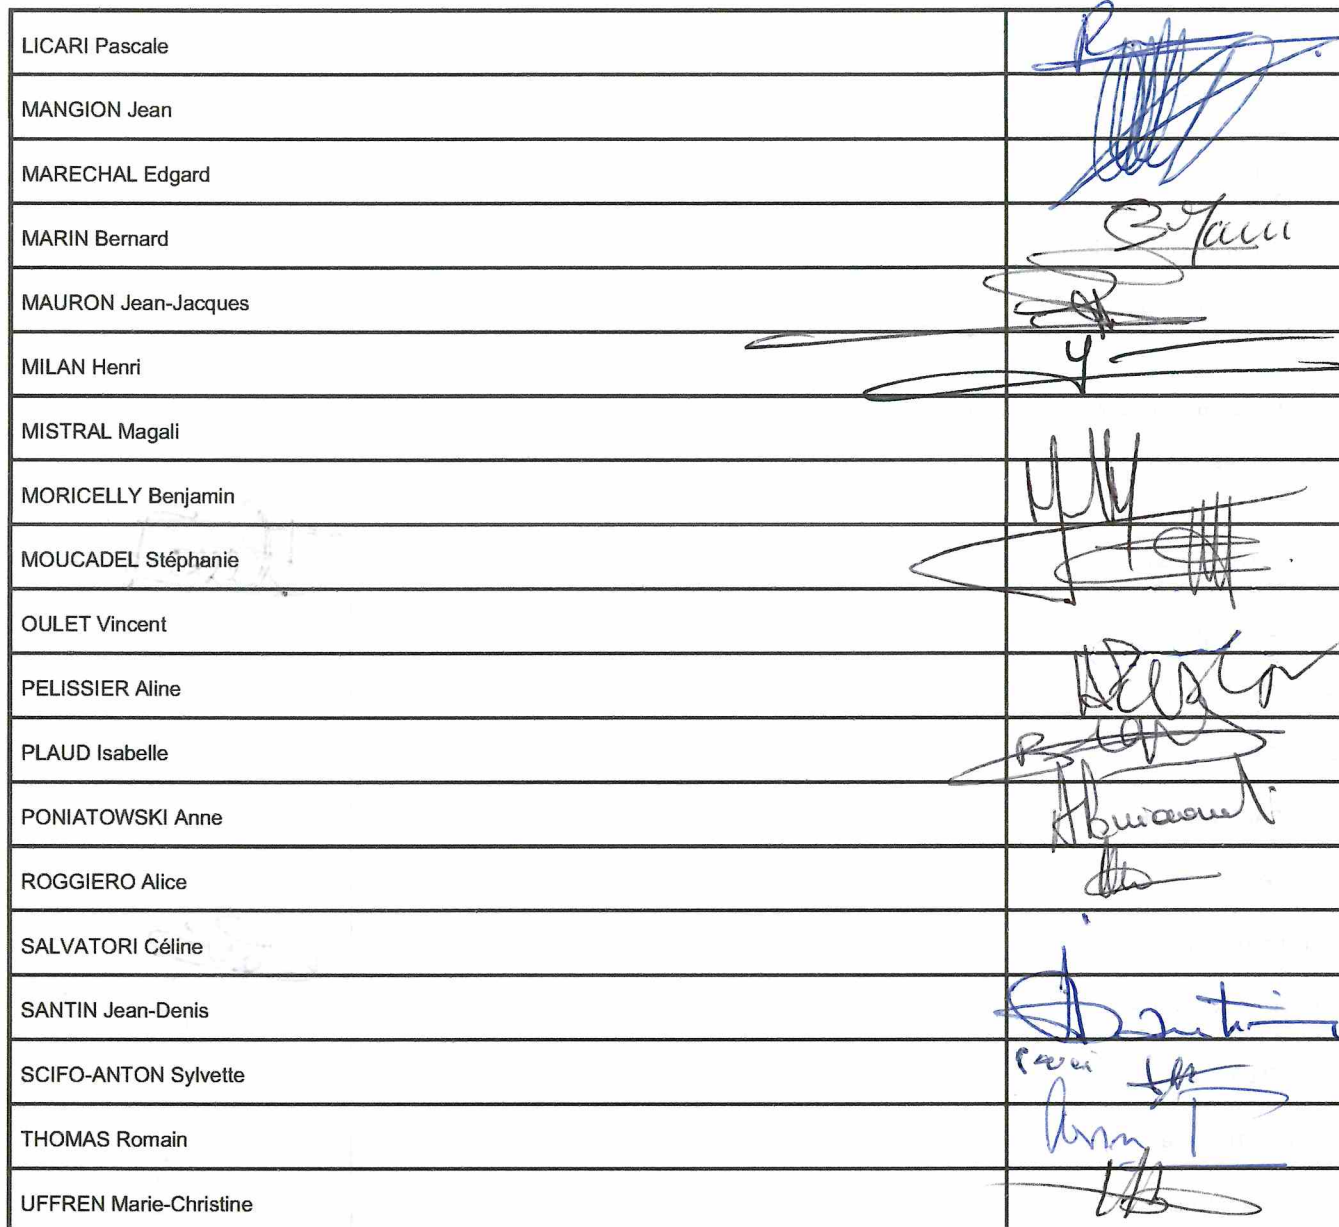 LICARI Pascale
MANGION Jean
MARECHAL Edgard
MARIN Bernard
MAURON Jean-Jacques
MILAN Henri
MISTRAL Magali
MORICELLY Benjamin
MOUCADEL Stéphanie
OULET Vincent
PELISSIER Aline
PLAUD Isabelle
PONIATOWSKI Anne
ROGGIERO Alice
SALVATORI Céline
SANTIN Jean-Denis
SCIFO-ANTON Sylvette
THOMAS Romain
UFFREN Marie-Christine